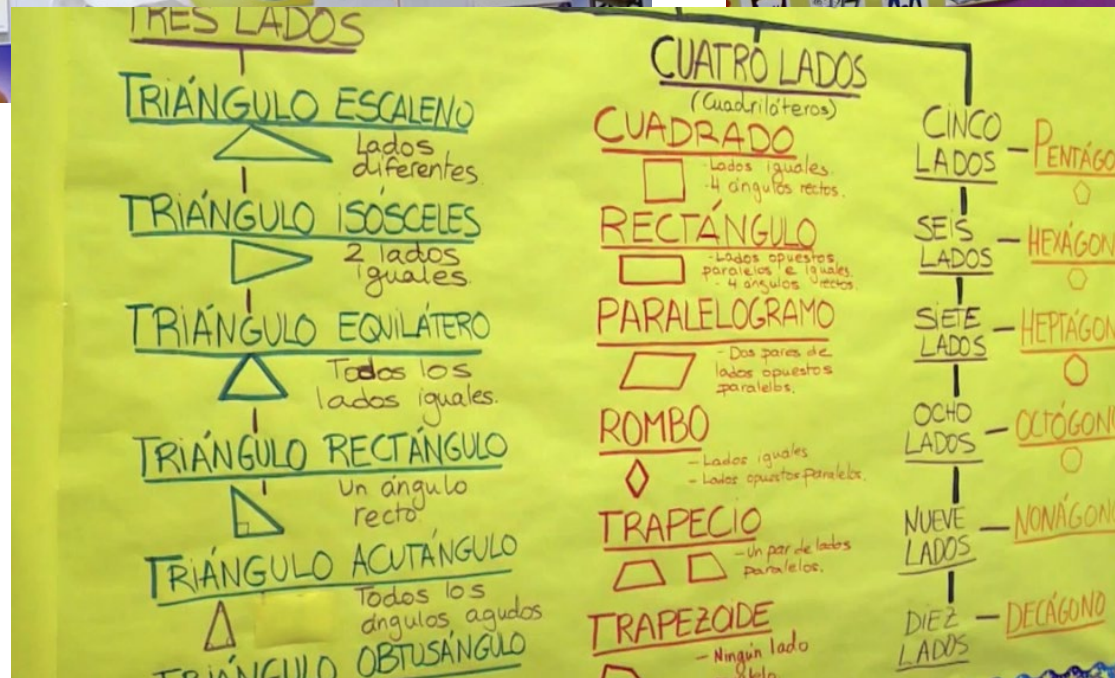 TRES LADOS
TRIÁNGULO ESCALENO
Lados
diferentes.
TRIÁNGULO ISÓSCELES
2 lados
iguales.
TRIÁNGULO EQUILÁTERO
Todos los
lados iguales.
TRIÁNGULO RECTÁNGULO
Un ángulo
recto.
TRIÁNGULO ACUTÁNGULO
Todos los
ángulos agudos
TRIÁNGULO OBTUSÁNGULO
CUATRO LADOS
(Cuadriláteros)
CUADRADO
-Lados iguales.
-4 ángulos rectos.
RECTÁNGULO
-Lados opuestos
paralelos e iguales.
- 4 ángulos rectos.
PARALELOGRAMO
- Dos pares de
lados opuestos
paralelos.
ROMBO
- Lados iguales
- Lados opuestos paralelos.
TRAPECIO
-Un par de lados
paralelos.
TRAPEZOIDE
- Ningún lado
CINCO
LADOS
- PENTÁGO
SEIS
LADOS
- HEXÁGON
SIETE
LADOS
- HEPTÁGON
OCHO
LADOS
- OCTÓGONO
NUEVE
LADOS
- NONÁGON
DIEZ
LADOS
- DECÁGONO